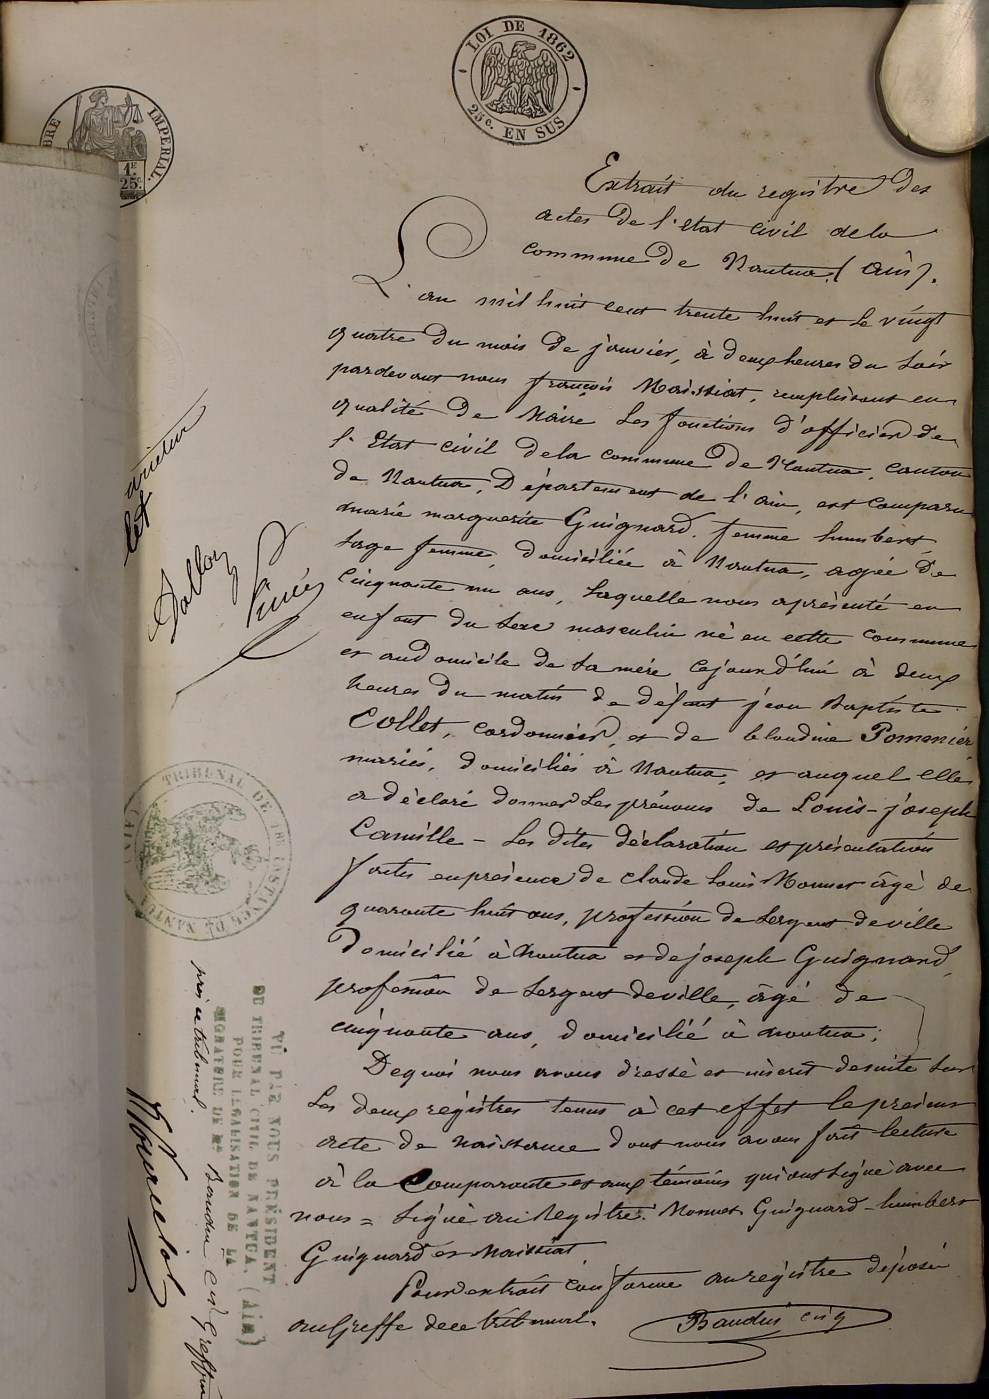 LOI DE 1862
25c. EN SUS
IMPERIAL.
1F
25c
Extrait du registre des
actes de l'etat civil de la
commune de Nantua (ain).
L'an mil huit cent trente huit et le vingt
quatre du mois de janvier, à deux heures du soir
pardevant nous françois Maissiat, remplissant en
qualité de Maire les fonctions d'officier de
l'Etat civil de la commune de Nantua, canton
de Nantua, Département de l'ain, est comparu
marie marguerite Guignard, femme humbert,
sage femme, domiciliée à Nantua, agée de
cinquante un ans, laquelle nous a présenté en
enfant du sexe masculin né en cette commune
et au domicile de sa mère cejourd'hui à deux
heures du matin de défunt jean Baptiste
Collet, cordonnier, et de claudine Pomenier
mariés, domiciliés à Nantua, et auquel elle
a déclaré donner les prénoms de Louis-joseph
Camille - Les dites déclaration et présentation
faites en présence de claude Louis Monnet âgé de
quarante huit ans, profession de sergent de ville
domicilié à Nantua et de joseph Guignard,
profession de sergent de ville, âgé de
cinquante ans, domicilié à nantua;
De quoi nous avons dressé et inscrit de suite sur
les deux registres tenus à cet effet le présent
acte de naissance dont nous avons fait lecture
à la Comparante et aux témoins qui ont signé avec
nous = Signé au Registre: Monnet Guignard - humbert
Guignard et Maissiat
Pour extrait conforme au registre déposé
au Greffe de ce tribunal.
Baudin
TRIBUNAL DE 1RE INSTANCE DE NANTUA (AIN)
VU PAR NOUS PRÉSIDENT
DU TRIBUNAL CIVIL DE NANTUA, (Ain)
POUR LEGALISATION DE LA
SIGNATURE DE Mr Baudin
près ce tribunal.